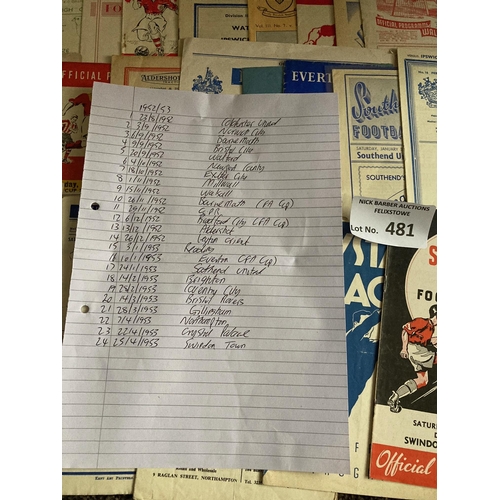 OFFICIAL PROGRAMME
ALDERSHOT
EVERT
South
FOOTBAL
SATURDAY, JANUARY
Southend U
SOUTHEND
NICK BARBER AUCTIONS
FELIXSTOWE
Lot No. 481
1952/53
1 23/8/1952 Colchester United
2 3/9/1952 Norwich City
3 6/9/1952 Bournemouth
4 9/9/1952 Bristol City
5 20/9/1952 Watford
6 4/10/1952 Newport County
7 18/10/1952 Exeter City
8 1/11/1952 Millwall
9 15/11/1952 Walsall
10 26/11/1952 Bournemouth (FA Cup)
11 29/11/1952 QPR
12 6/12/1952 (FA Cup)
13 13/12/1952 Aldershot
14 26/12/1952 Leyton Orient
15 3/1/1953 Reading
16 10/1/1953 Everton (FA Cup)
17 24/1/1953 Southend United
18 14/2/1953 Brighton
19 28/2/1953 Coventry City
20 14/3/1953 Bristol Rovers
21 28/3/1953 Gillingham
22 7/4/1953 Northampton
23 22/4/1953 Crystal Palace
24 25/4/1953 Swindon Town
FOO
SATUR
SWINDO
Official
Wholesale and Retail
RAGLAN STREET, NORTHAMPTON